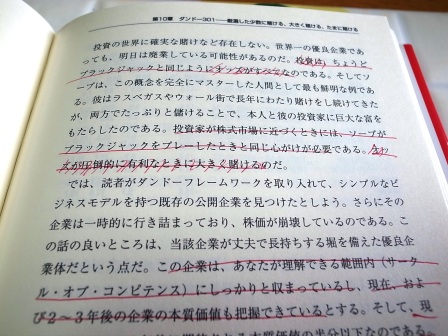 第10章 ダンドー301――厳選した少数に賭ける、大きく賭ける、たまに賭ける
投資の世界に確実な賭けなど存在しない。世界一の優良企業であ
っても、明日は廃業している可能性があるのだ。投資は、ちょうど
ブラックジャックと同じようにオッズがすべてなのである。そしてソ
ープは、この概念を完全にマスターした人間として最も鮮明な例であ
る。彼はラスベガスやウォール街で長年にわたり賭けを続けてきた
が、両方でたっぷりと儲けることで、本人と彼の投資家に巨大な富を
もたらしたのである。投資家が株式市場に近づくときには、ソープが
ブラックジャックをプレーしたときと同じ心がけが必要である。オッ
ズが圧倒的に有利なときに大きく賭けるのだ。
では、読者がダンドーフレームワークを取り入れて、シンプルなビ
ジネスモデルを持つ既存の公開企業を見つけたとしよう。さらにその
企業は一時的に行き詰まっており、株価が崩壊しているのである。こ
の話の良いところは、当該企業が丈夫で長持ちする堀を備えた優良企
業体だという点だ。この企業は、あなたが理解できる範囲内（サーク
ル・オブ・コンピテンス）にしっかりと収まっているし、現在、およ
び2～3年後の企業の本質価値も把握できているとする。そして、現